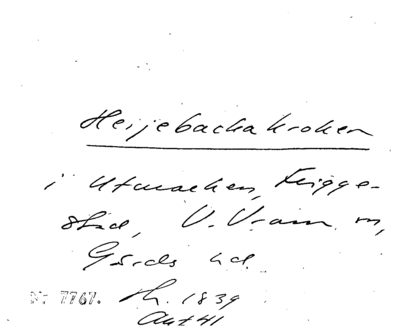 Heijebackakroken
i Utmarken, Frigge-
stad, V. Vram sn,
Gärds hd.
Nr 7767. Sh. 1839
Akt 41